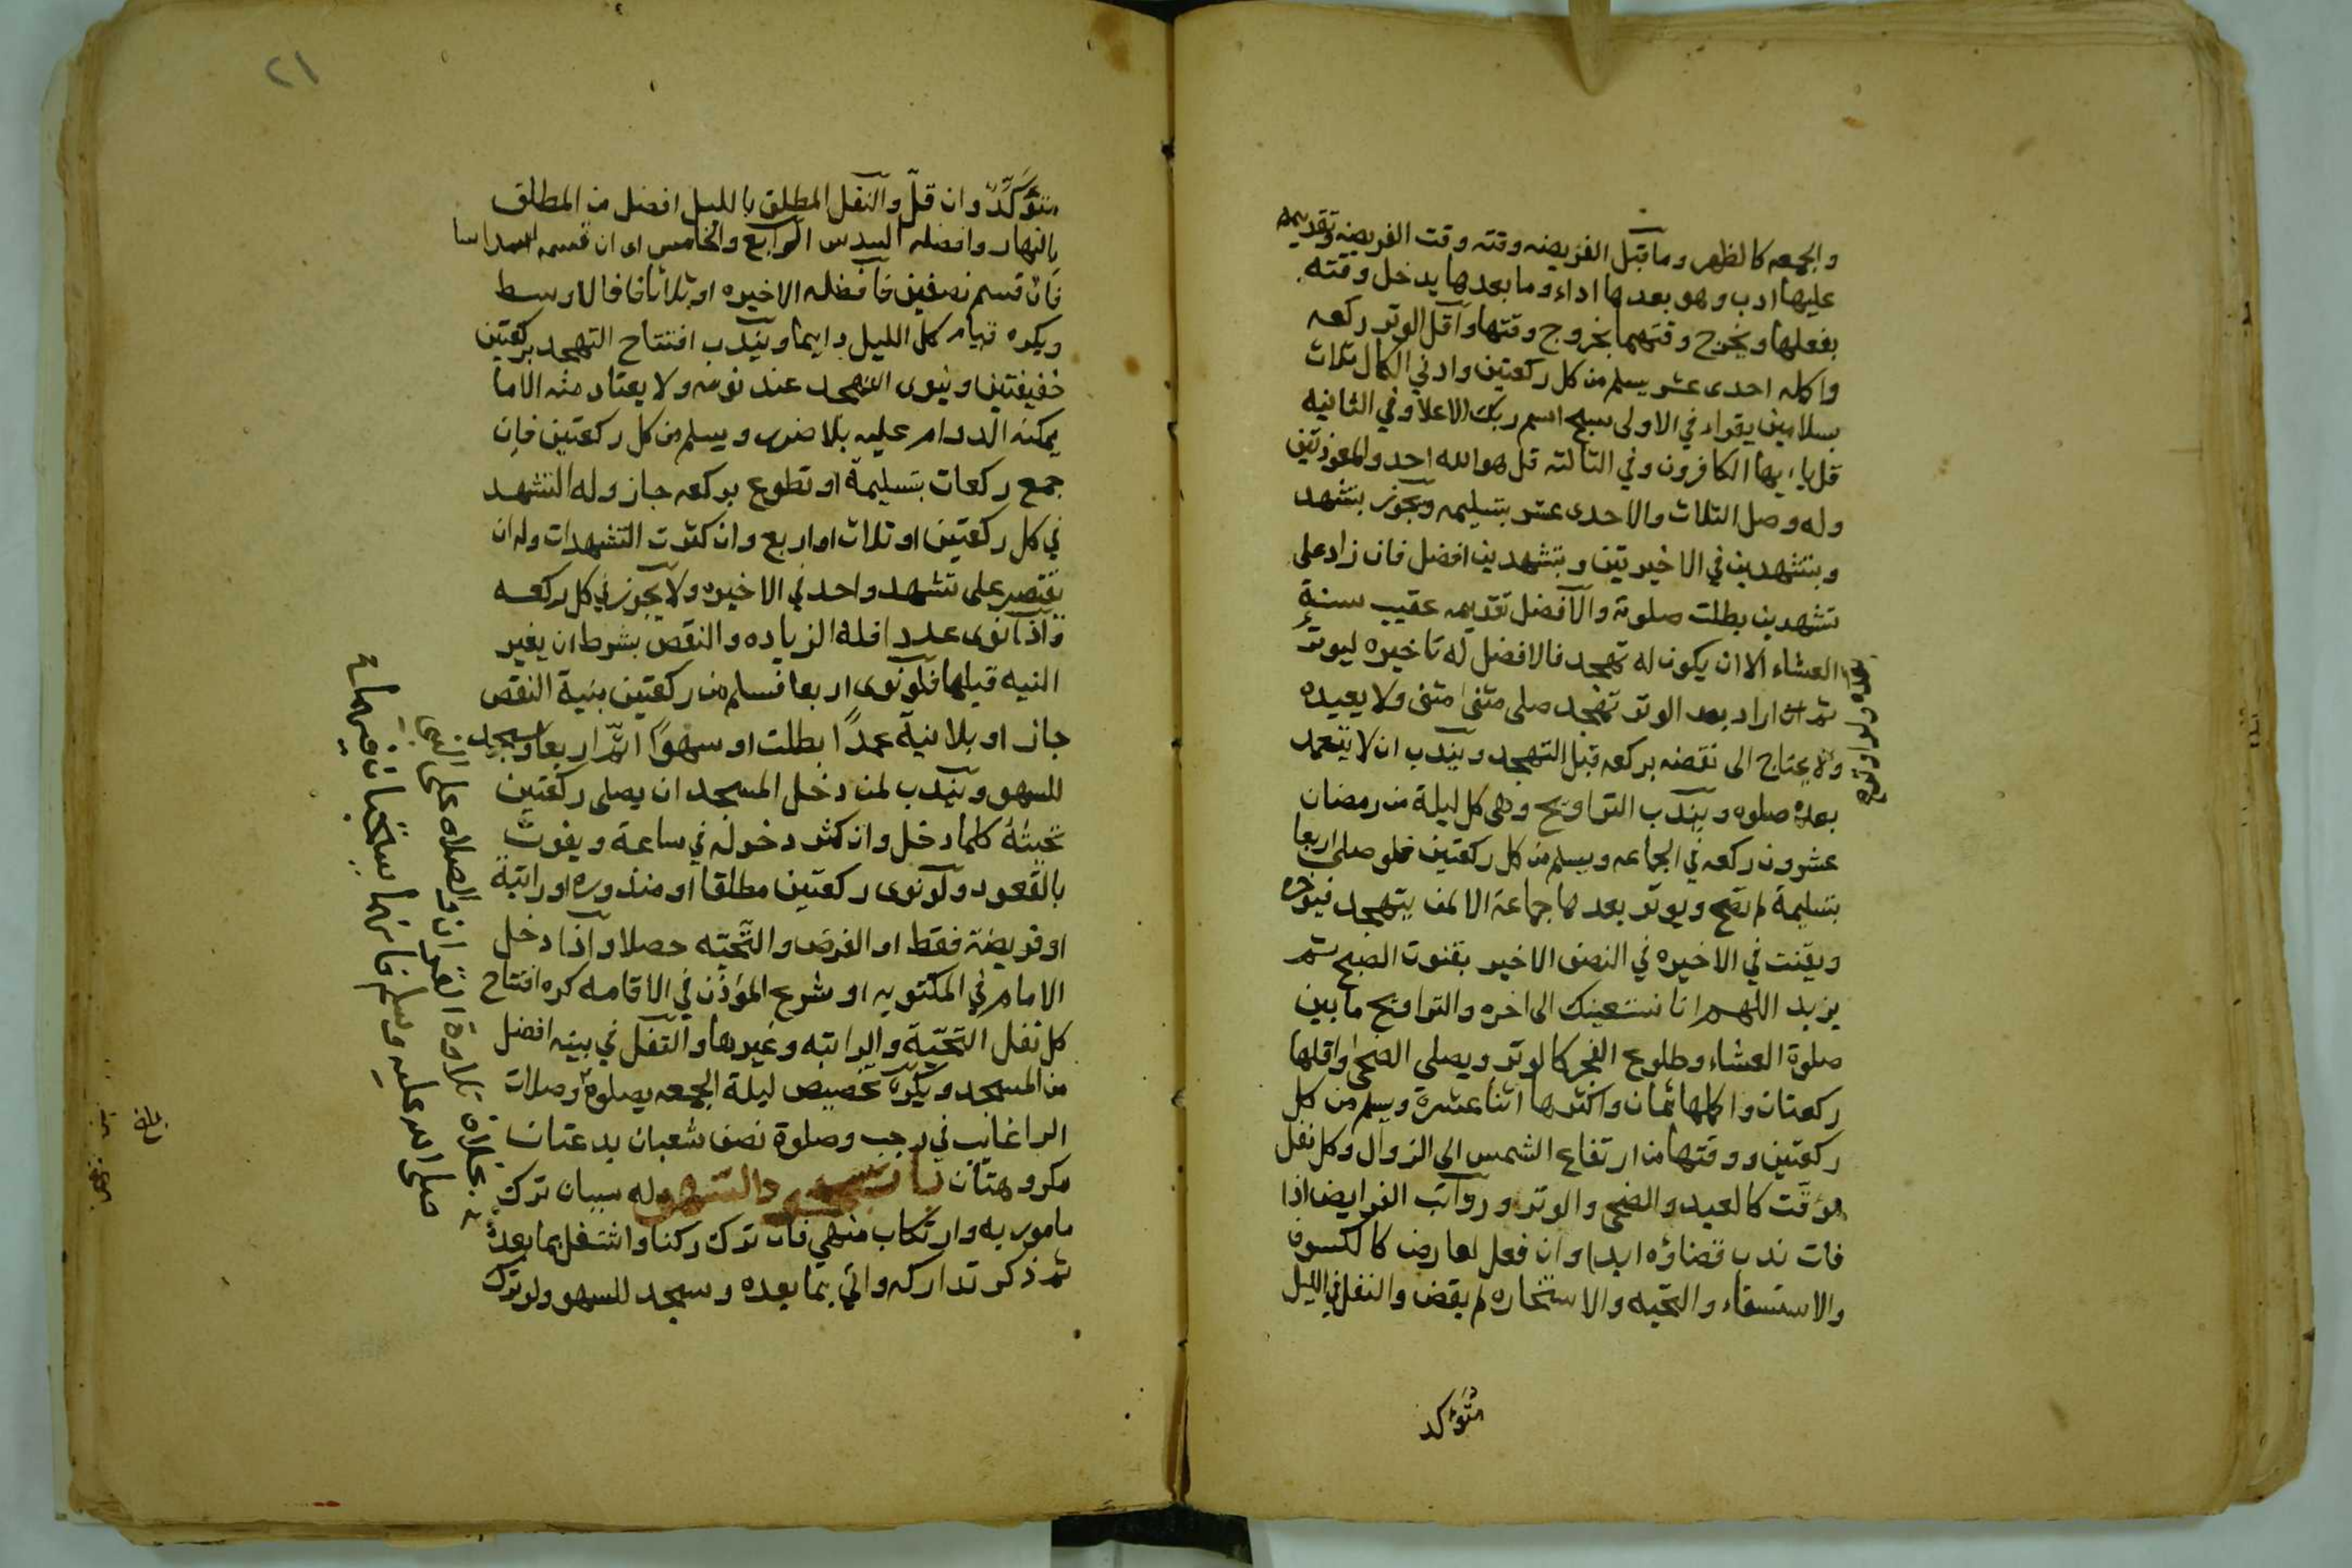 والجمعه كالظهر وما قبل الفريضه وقته وقت الفريضه وتقديمه
عليها ادب وهو بعدها اداء وما بعدها يدخل وقته
بفعلها ويخرج وقتهما بخروج وقتها واقل الوتر ركعه
واكمله احدى عشر يسلم من كل ركعتين وادني الكمال ثلاث
بسلامين يقراء في الاولى سبح اسم ربك الاعلا وفي الثانيه
قل يا ايها الكافرون وفي الثالثه قل هو الله احد والمعوذتين
وله وصل الثلاث والاحدى عشر بتسليمه ويجوز بتشهد
وبتشهدين في الاخيرتين وبتشهدين افضل فان زاد على
تشهدين بطلت صلوته والافضل تقديمه عقيب سنة
العشاء الا ان يكون له تهجد فالافضل له تاخيره ليوتر
ثم ان اراد بعد الوتر تهجد صلى مثنى مثنى ولا يعيده
ولا يحتاج الى نقضه بركعه قبل التهجد ويندب ان لا يتعمد
بعده صلوه ويندب التراويح وهي كل ليلة من رمضان
عشرون ركعه في الجماعه ويسلم من كل ركعتين فلو صلى اربعا
بتسليمة لم تصح ويوتر بعدها جماعة الا لمن يتهجد فيوخره
ويقنت في الاخيره في النصف الاخير بقنوت الصبح ثم
يزيد اللهم انا نستعينك الى اخره والتراويح ما بين
صلوة العشاء وطلوع الفجر كالوتر ويصلى الضحى واقلها
ركعتان واكملها ثمان واكثرها اثنا عشرة ويسلم من كل
ركعتين ووقتها من ارتفاع الشمس الى الزوال وكل نفل
موقت كالعيد والضحى والوتر ورواتب الفرايض اذا
فات ندب قضاؤه ابدا وان فعل لعارض كالكسوف
والاستسقاء والتحيه والاستخاره لم يقض والنفل في الليل
متؤكد
٢١
متوكد وان قل والنفل المطلق بالليل افضل من المطلق
بالنهار وافضله السدس الرابع والخامس اى ان قسمه اسداسا
فان قسم نصفين فافضله الاخيره او ثلاثا فالاوسط
ويكره قيام كل الليل دايما ويندب افتتاح التهجد بركعتين
خفيفتين وينوى التهجد عند نومه ولا يعتاد منه الا ما
يمكنه الدوام عليه بلا ضرر ويسلم من كل ركعتين فان
جمع ركعات بتسليمة او تطوع بركعه جاز وله التشهد
في كل ركعتين او ثلاث او اربع وان كثرت التشهدات وله ان
يقتصر على تشهد واحد في الاخيره ولا يجوز في كل ركعه
واذا نوى عددا فله الزياده والنقص بشرط ان يغير
النيه قبلها فلو نوى اربعا فسلم من ركعتين بنية النقص
جاز او بلا نية عمدا بطلت او سهوا اتم اربعا وسجد
للسهو ويندب لمن دخل المسجد ان يصلى ركعتين
تحيته كلما دخل وان كثر دخوله في ساعة ويفوت
بالقعود ولو نوى ركعتين مطلقا او منذوره او راتبة
او فريضة فقط او الفرض والتحيه حصلا واذا دخل
الامام في المكتوبه او شرع المؤذن في الاقامه كره افتتاح
كل نفل التحية والراتبه وغيرها والنفل في بيته افضل
من المسجد ويكره تخصيص ليلة الجمعه بصلوة وصلات
الراغايب في رجب وصلوة نصف شعبان بدعتان
مكروهتان باب سجود السهو له سببان ترك
مامور به وارتكاب منهي فان ترك ركنا واشتغل بما بعده
ثم ذكر تداركه واتي بما بعده وسجد للسهو ولو ترك
بخلاف تلاوة القران والصلاه على النبي
صلى الله عليه وسلم
بلغ